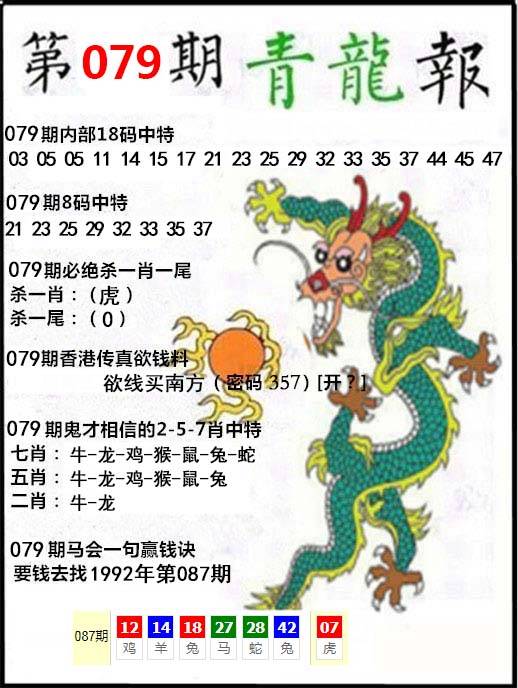 第079期 青龍報
079期内部18码中特
03 05 05 11 14 15 17 21 23 25 29 32 33 35 37 44 45 47
079期8码中特
21 23 25 29 32 33 35 37
079期必绝杀一肖一尾
杀一肖：（虎）
杀一尾：（0）
079期香港传真欲钱料
欲线买南方（密码357）[开？]
079期鬼才相信的2-5-7肖中特
七肖：牛-龙-鸡-猴-鼠-兔-蛇
五肖：牛-龙-鸡-猴-鼠-兔
二肖：牛-龙
079期马会一句赢钱诀
要钱去找1992年第087期
087期 12 14 18 27 28 42 07
鸡 羊 兔 马 蛇 兔 虎